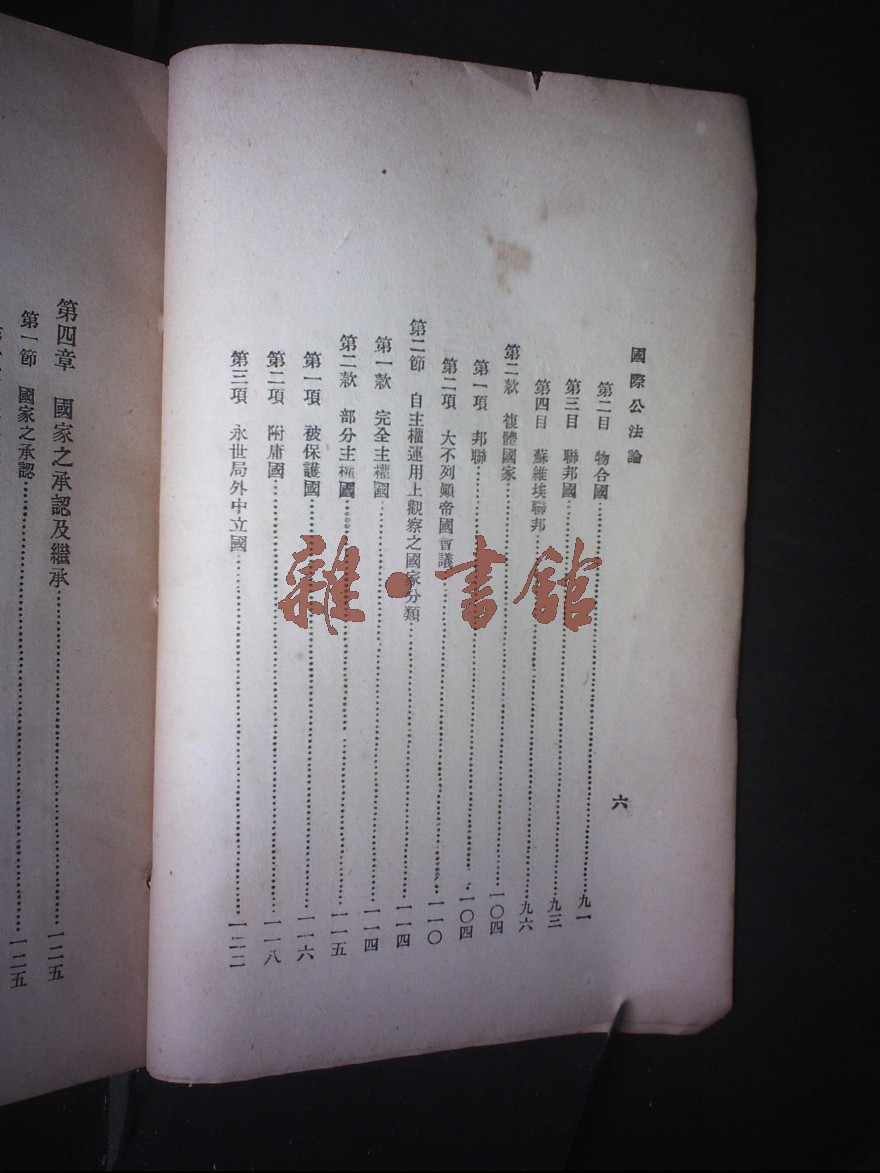 國際公法論
六
第二目 物合國……九一
第三目 聯邦國……九三
第四目 蘇維埃聯邦……九六
第二款 複體國家……一〇四
第一項 邦聯……一〇四
第二項 大不列顛帝國會議……一一〇
第二節 自主權運用上觀察之國家分類……一一四
第一款 完全主權國……一一四
第二款 部分主權國……一一五
第一項 被保護國……一一六
第二項 附庸國……一一八
第三項 永世局外中立國……一二二
第四章 國家之承認及繼承……一二五
第一節 國家之承認……一二五
雜·書館